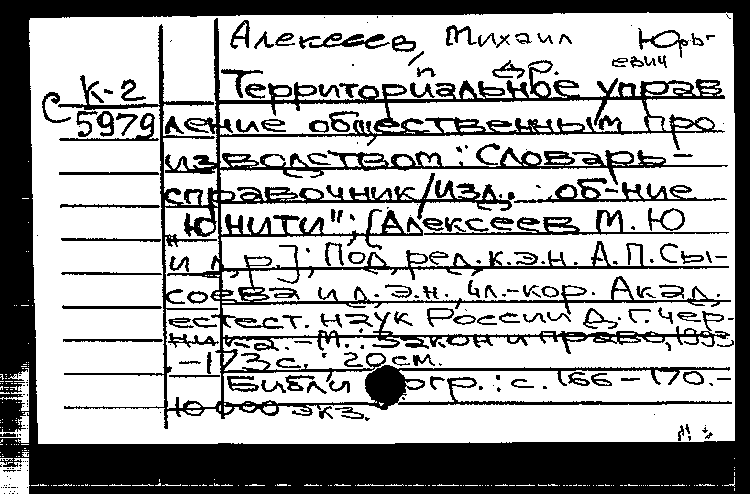 Алексеев, Михаил Юрь-
евич
и др.
К-2 Территориальное управ
С 5979 ление общественным про
изводством: Словарь-
справочник/изд. об-ние
"ЮНИТИ"; [Алексеев М. Ю
и др.]; Под ред. к.э.н. А.П. Сы-
соева и д.э.н., чл.-кор. Акад.
естест. наук России Д.Г. Чер-
ника.-М.: Закон и право, 1993
.-173 с.; 20 см.
Библиогр.: с. 166-170.-
10 000 экз.